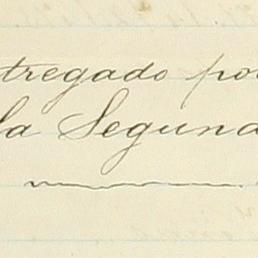 tregado por
la Segund